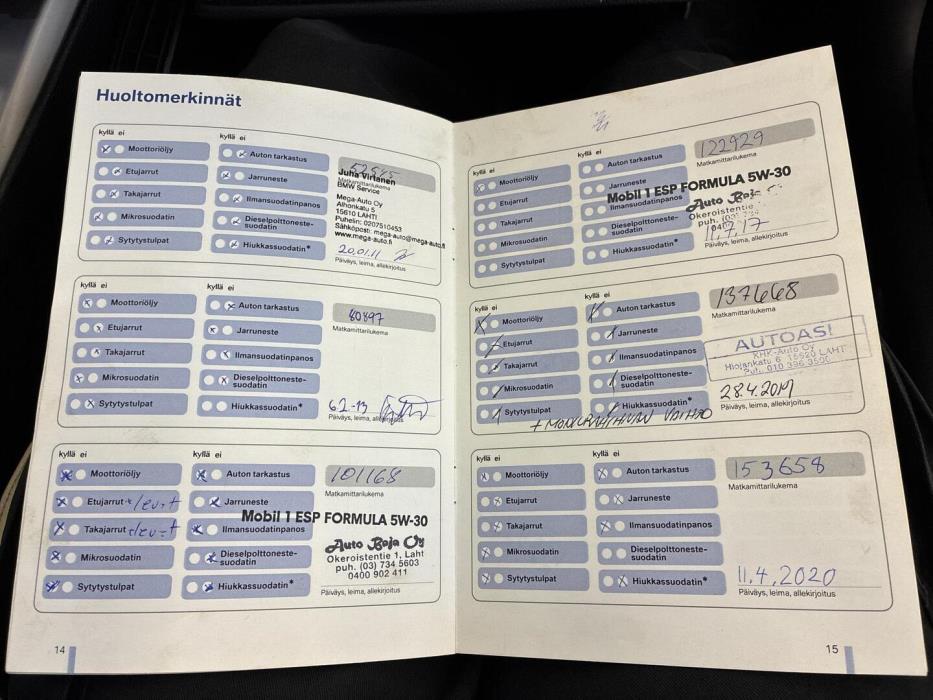 Huoltomerkinnät
kyllä ei
kyllä ei
Moottoriöljy
Etujarrut
Takajarrut
Mikrosuodatin
Sytytystulpat
Auton tarkastus
Jarruneste
Ilmansuodatinpanos
Dieselpolttoneste-
suodatin
Hiukkassuodatin*
Juha Virtanen
Matkamittarilukema
BMW Service
Mega-Auto Oy
Alhonkatu 5
15610 LAHTI
Puhelin: 0207510453
Sähköposti: mega-auto@mega-auto.fi
www.mega-auto.fi
20.01.11
Päiväys, leima, allekirjoitus
kyllä ei
kyllä ei
Moottoriöljy
Etujarrut
Takajarrut
Mikrosuodatin
Sytytystulpat
Auton tarkastus
Jarruneste
Ilmansuodatinpanos
Dieselpolttoneste-
suodatin
Hiukkassuodatin*
80897
Matkamittarilukema
6.2.-13
Päiväys, leima, allekirjoitus
kyllä ei
kyllä ei
Moottoriöljy
Etujarrut
Takajarrut
Mikrosuodatin
Sytytystulpat
Auton tarkastus
Jarruneste
Ilmansuodatinpanos
Dieselpolttoneste-
suodatin
Hiukkassuodatin*
101168
Matkamittarilukema
Mobil 1 ESP FORMULA 5W-30
Auto Boja Oy
Okeroistentie 1, Laht
puh. (03) 734 5603
0400 902 411
Päiväys, leima, allekirjoitus
14
kyllä ei
kyllä ei
Moottoriöljy
Etujarrut
Takajarrut
Mikrosuodatin
Sytytystulpat
Auton tarkastus
Jarruneste
Ilmansuodatinpanos
Dieselpolttoneste-
suodatin
Hiukkassuodatin*
122929
Matkamittarilukema
Mobil 1 ESP FORMULA 5W-30
Auto Boja
Okeroistentie
puh.
11.7.17
Päiväys, leima, allekirjoitus
kyllä ei
kyllä ei
Moottoriöljy
Etujarrut
Takajarrut
Mikrosuodatin
Sytytystulpat
Auton tarkastus
Jarruneste
Ilmansuodatinpanos
Dieselpolttoneste-
suodatin
Hiukkassuodatin*
137668
Matkamittarilukema
AUTOASI
KHK-Auto Oy
Hiojankatu 6 15520 LAHTI
Puh. 010 396 3500
28.4.2019
Päiväys, leima, allekirjoitus
+ MONIURAHIHNAN VAIHTO
kyllä ei
kyllä ei
Moottoriöljy
Etujarrut
Takajarrut
Mikrosuodatin
Sytytystulpat
Auton tarkastus
Jarruneste
Ilmansuodatinpanos
Dieselpolttoneste-
suodatin
Hiukkassuodatin*
153658
Matkamittarilukema
11.4.2020
Päiväys, leima, allekirjoitus
15